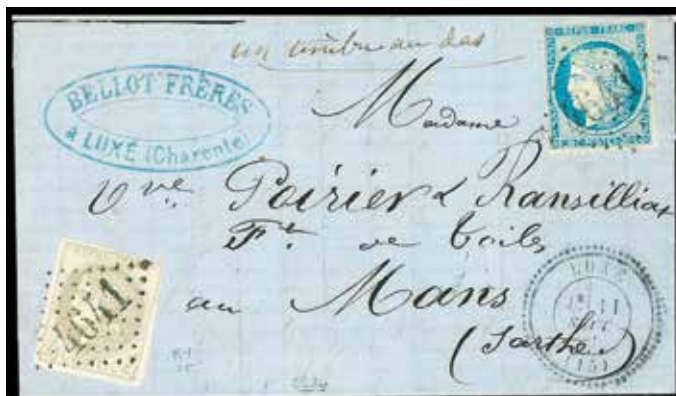 un timbre au dos
REPUB. FRANC.
BELLOT FRÈRES
à LUXÉ (Charente)
Madame
Vve Poirier & Ransilliat
Ft. de toiles
au Mans
(Sarthe)
4641
LUXÉ
11
SEPT
(15)